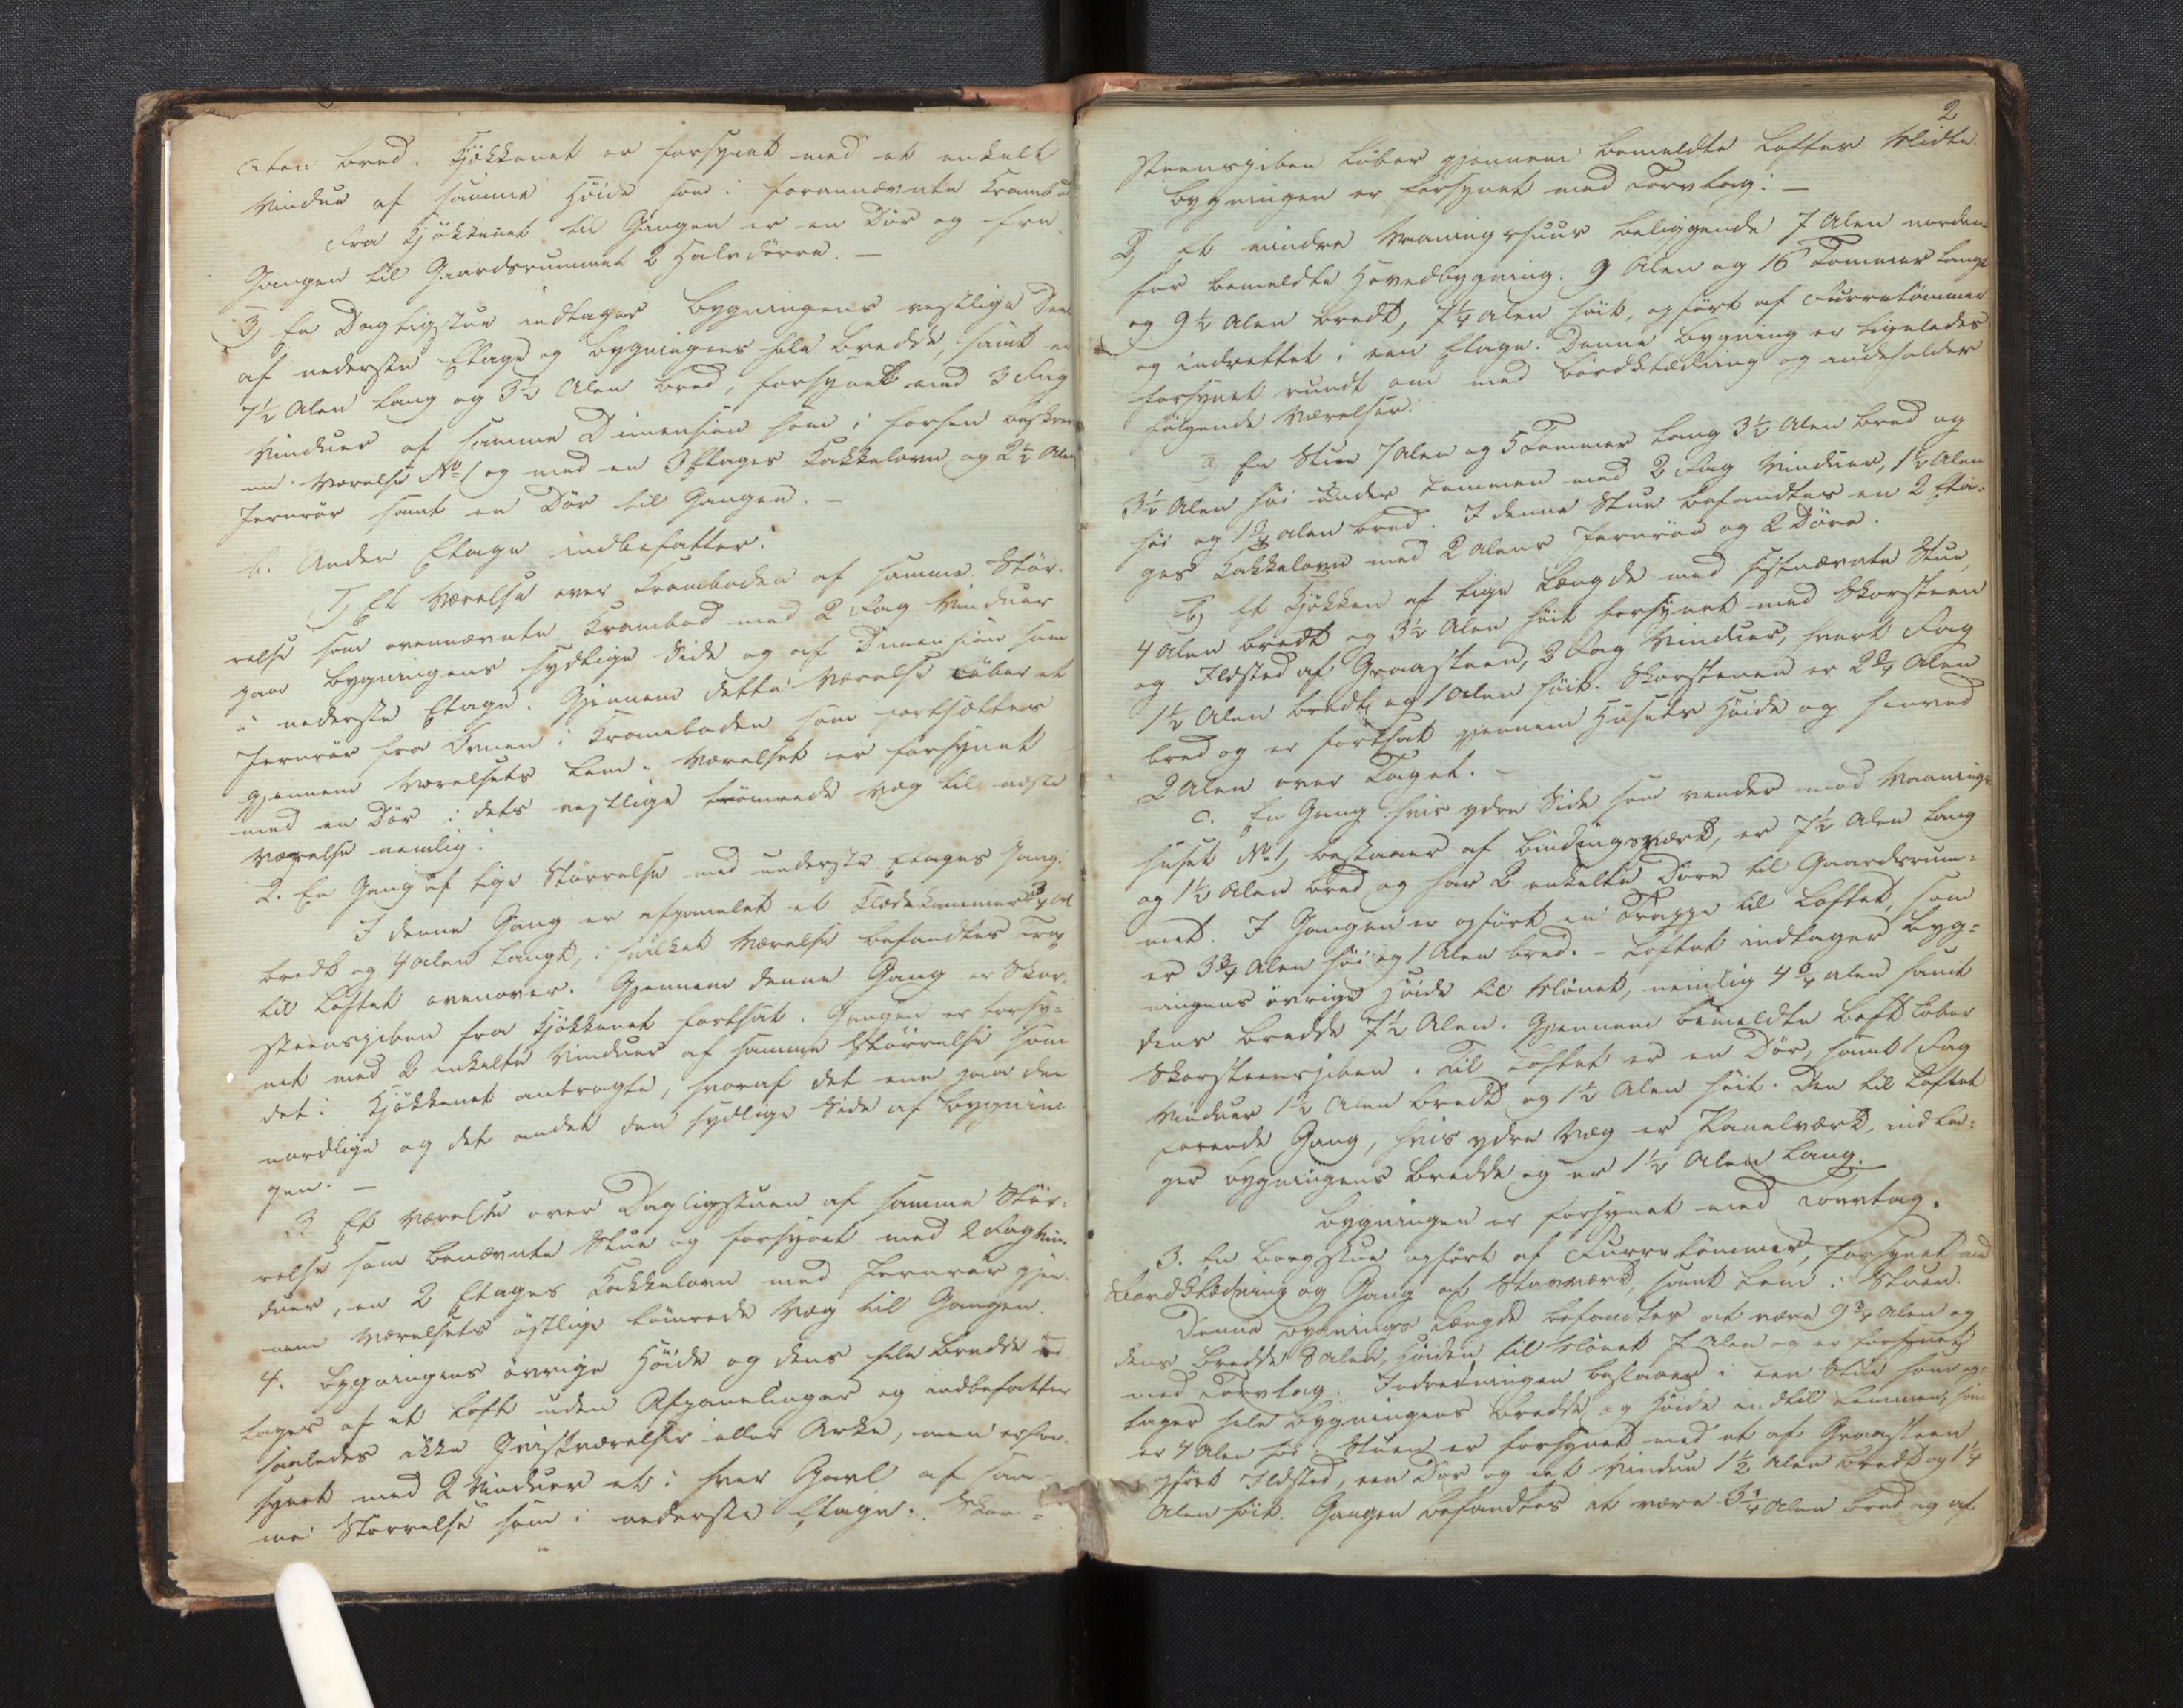 Alen bred. Kjøkkenet er forsynet med et enkelt
Vindue af samme Høide som i forannævnte Krambod
Fra Kjøkkenet til Gangen er en Dør og fra
Gangen til Gaardsrummet 2 Halvdørre. —
3) En Dagligstue indtager Bygningens vestlige Deel
af nederste Etage og Bygningens hele Bredde, samt er
7½ Alen lang og 3½ Alen bred, forsynet med 3 Fag
Vinduer af samme Dimension som i forhen beskrev
ne Værelse No 1 og med en 3 Etages Kakkelovn og 2½ Alen
Jernrør samt en Dør til Gangen. —
b. Anden Etage indbefatter:
1) Et Værelse over Kramboden af samme Stør-
relse som ovennævnte Krambod med 2 Fag Vinduer
paa Bygningens sydlige Side og af Dimension som
i nederste Etage. Gjennem dette Værelse løber et
Jernrør fra Ovnen i Kramboden som fortsættes
gjennem Værelsets Lem. Værelset er forsynet
med en Dør i dets vestlige tømrede Væg til næste
Værelse nemlig:
2. En Gang af lige Størrelse med underste Etages Gang.
I denne Gang er afpanelet et Klædekammer ¾ Al
bredt og 4 Alen langt, i hvilket Værelse befandtes Trap
til Loftet ovenover. Gjennem denne Gang er Skor-
steenspiben fra Kjøkkenet fortsat. Gangen er forsy=
net med 2 enkelte Vinduer af samme Størrelse som
det i Kjøkkenet antragte, hvoraf det ene paa den
nordlige og det andet den sydlige Side af Bygnin
gen. —
3 Et Værelse over Dagligstuen af samme Stør-
relse som benævnte Stue og forsynet med 2 Fag Vin-
duer, en 2 Etages Kakkelovn med Jernrør gjen-
nem Værelsets østlige tømrede Væg til Gangen.
4. Bygningens øvrige Høide og dens hele Bredde ind
tages af et Loft uden Afpanelinger og indbefatter
saaledes ikke Qvistværelser eller Arke, men er for-
synet med 2 Vinduer et i hver Gavl af sam-
me Størrelse som i nederste Etage. Skor=
2
steenspiben løber gjennem bemeldte Loftes Midte.
Bygningen er forsynet med Torvtag: —
2) Et mindre Vaaningshuus beliggende 7 Alen norden-
for bemeldte Hovedbygning. 9 Alen og 16 Tommer langt
og 9½ Alen bredt, 7¼ Alen høit, opført af Furretømmer
og indrettet i een Etage. Denne Bygning er ligeledes
forsynet rundt om med Bordklædning og indeholder
følgende Værelser:
a) En Stue 7 Alen og 5 Tommer lang 3½ Alen bred og
3½ Alen høi under Lemmen med 2 Fag Vinduer, 1½ Alen
høi og 1¾ Alen bred. I denne Stue befandtes en 2 Eta=
ges Kakkelovn med 2 Alens Jernrør og 2 Døre.
b) Et Kjøkken af lige Længde med sistnævnte Stue,
4 Alen bredt og 3½ Alen høit forsynet med Skorsteen
og Ildsted af Graasteen, 2 Fag Vinduer, hvert Fag
1½ Alen bredt og 1 Alen høit. Skorstenen er 2¾ Alen
bred og er fortsat gjennem Husets Høide og henved
2 Alen over Taget. —
c. En Gang hvis ydre Side som vender mod Vaanings=
huset No 1, bestaaer af Bindingsværk, er 7½ Alen lang
og 1½ Alen bred og har 2 enkelte Døre til Gaardsrum=
met. I Gangen er opført en Trappe til Loftet, som
er 3¾ Alen høi og 1 Alen bred. — Loftet indtager Byg=
ningens øvrige Høide til Mønet, nemlig 4¾ Alen samt
dens Bredde 7½ Alen. Gjennem bemeldte Loft løber
Skorsteenspiben. Til Loftet er en Dør, samt 1 Fag
Vinduer 1½ Alen bredt og 1½ Alen høit. Den til Loftet
førende Gang, hvis ydre Væg er Panelværk, indta=
ger Bygningens Bredde og er 1½ Alen lang.
Bygningen er forsynet med Torvtag.
3. En Borgstue opført af Furretømmer, forsynet med
Bordklædning og Gang af Stavværk, samt Lem i Stuen.
Denne Bygnings Længde befandtes at være 9¾ Alen og
dens Bredde 8 Alen, Høiden til Mønet 7 Alen og er forsynet
med Torvtag. Indredningen bestaaer i een Stue som op=
tager hele Bygningens Bredde og Høide indtil Lemmen, som
er 4 Alen høi. Stuen er forsynet med et af Graasteen
opført Ildsted, een Dør og eet Vindue 1½ Alen bredt og 1¼
Alen høit. Gangen befandtes at være 3¼ Alen bred og af